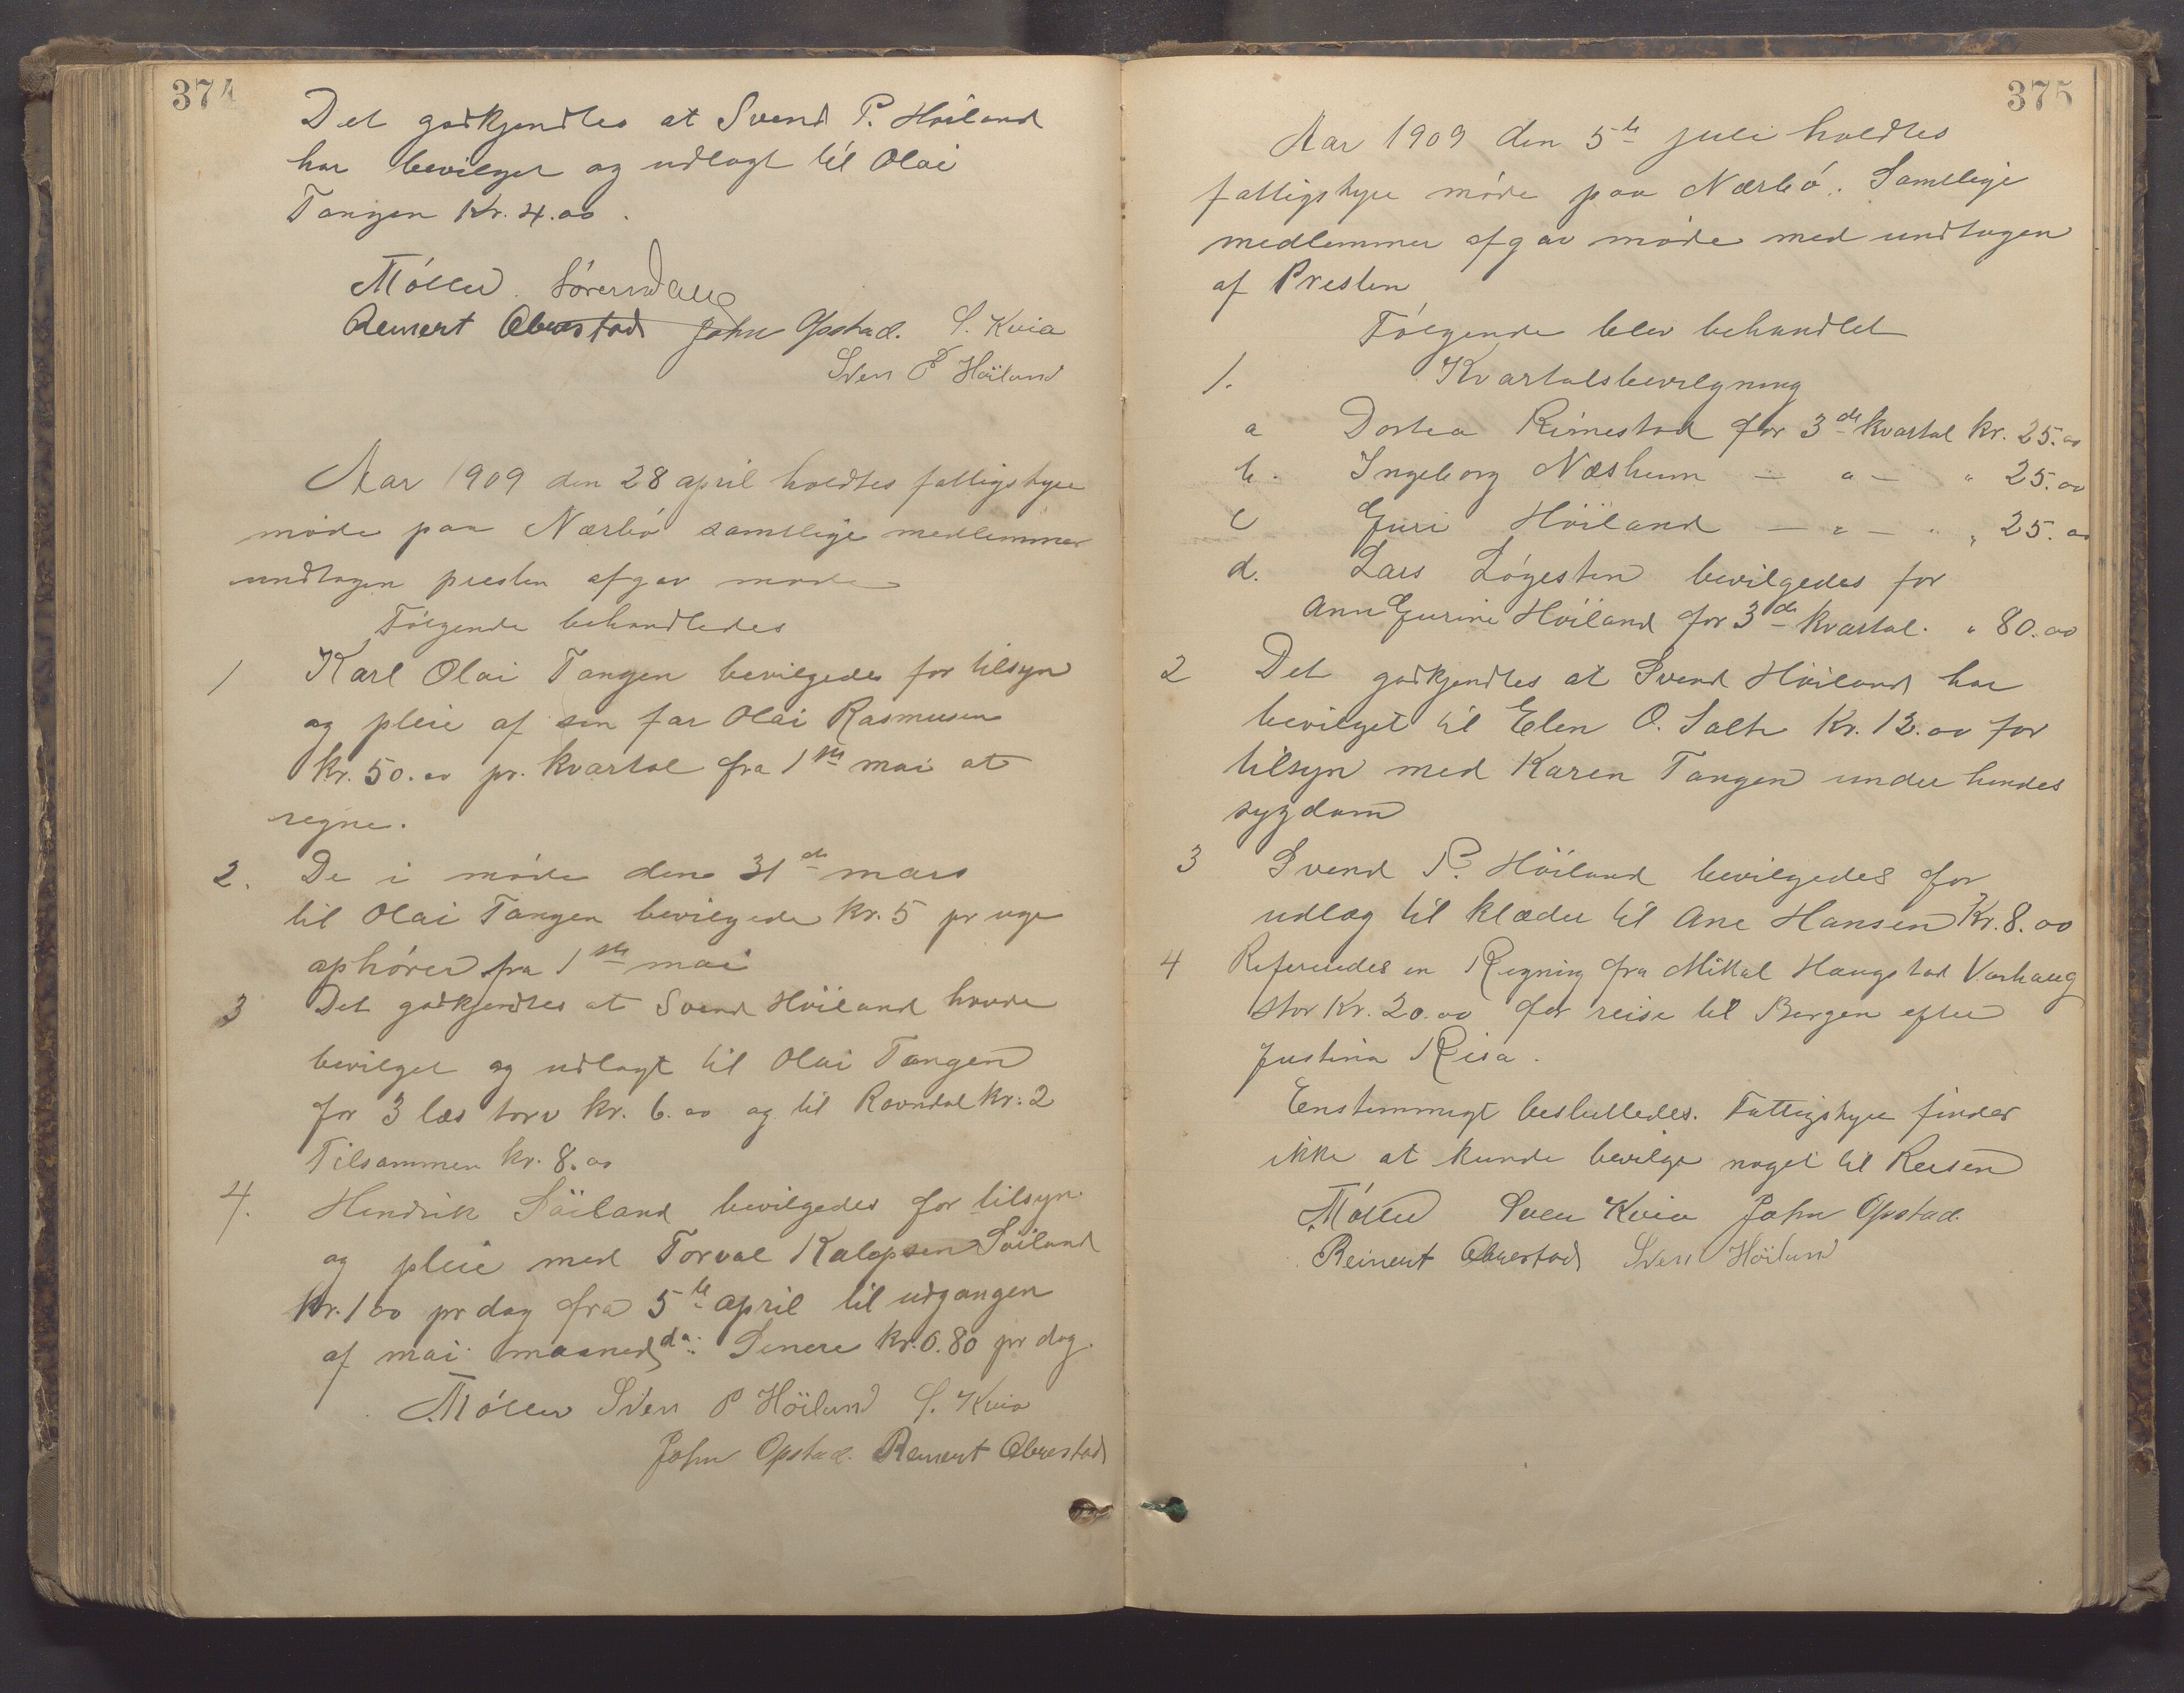 374
Det godkjendtes at Svend P. Höiland
har bevilget og udlagt til Olai
Tangen Kr. 4.00.
Móller
Reinert Obrestad John Opstad. S. Kvia
Sven P Höiland
Aar 1909 den 28 april holdtes fattigstyre
móde paa Nærbó samtlige medlemmer
undtagen presten afgav mode
Fólgende behandledes
1 Karl Olai Tangen bevilgedes for tilsyn
og pleie af sin far Olai Rasmusen
kr. 50.00 pr. kvartal fra 1ste mai at
regne.
2. De i móde den 31de mars
til Olai Tangen bevilgede kr. 5 pr uge
ophórer fra 1ste mai
3 Det godkjendtes at Svend Höiland havde
bevilget og udlagt til Olai Tangen
for 3 læs torv kr. 6.00 og til Ravndal kr: 2
Tilsammen kr. 8.00
4. Hendrik Söiland bevilgedes for tilsyn
og pleie med Torval Kalepsen Söiland
kr. 1 00 pr dag fra 5te april til udgangen
af mai maaned d.a. Senere kr. 0.80 pr dag.
Móller Sven P Höiland S. Kvia
John Opstad. Reinert Obrestad
375
Aar 1909 den 5te juli holdtes
fattigstyre móde paa Nærbó. Samtlige
medlemmer afgav móde med undtagen
af Presten
Fólgende blev behandlet
1. Kvartalsbevilgning
a Dortea Rimestad for 3de kvartal kr. 25.00
b. Ingeborg Næsheim — " — " 25.00
c Guri Höiland — " — " 25.00
d. Lars Lógesten bevilgedes for
Ane Gurine Höiland for 3de kvartal. " 80.00
2 Det godkjendtes at Svend Höiland har
bevilget til Elen O. Salte Kr. 12.00 for
tilsyn med Karen Tangen under hendes
sygdom
3 Svend P. Höiland bevilgedes for
udlæg til klæder til Ane Hansen Kr. 8.00
4 Refereredes en Regning fra Mikal Haugstad Varhaug
stor Kr. 20.00 for reise til Bergen efter
Justina Risa.
Enstemmigt besluttedes. Fattigstyre finder
ikke at kunde bevilge noget til Reisen
Móller Sven Kvia John Opstad.
Reinert Obrestad Sven Höiland